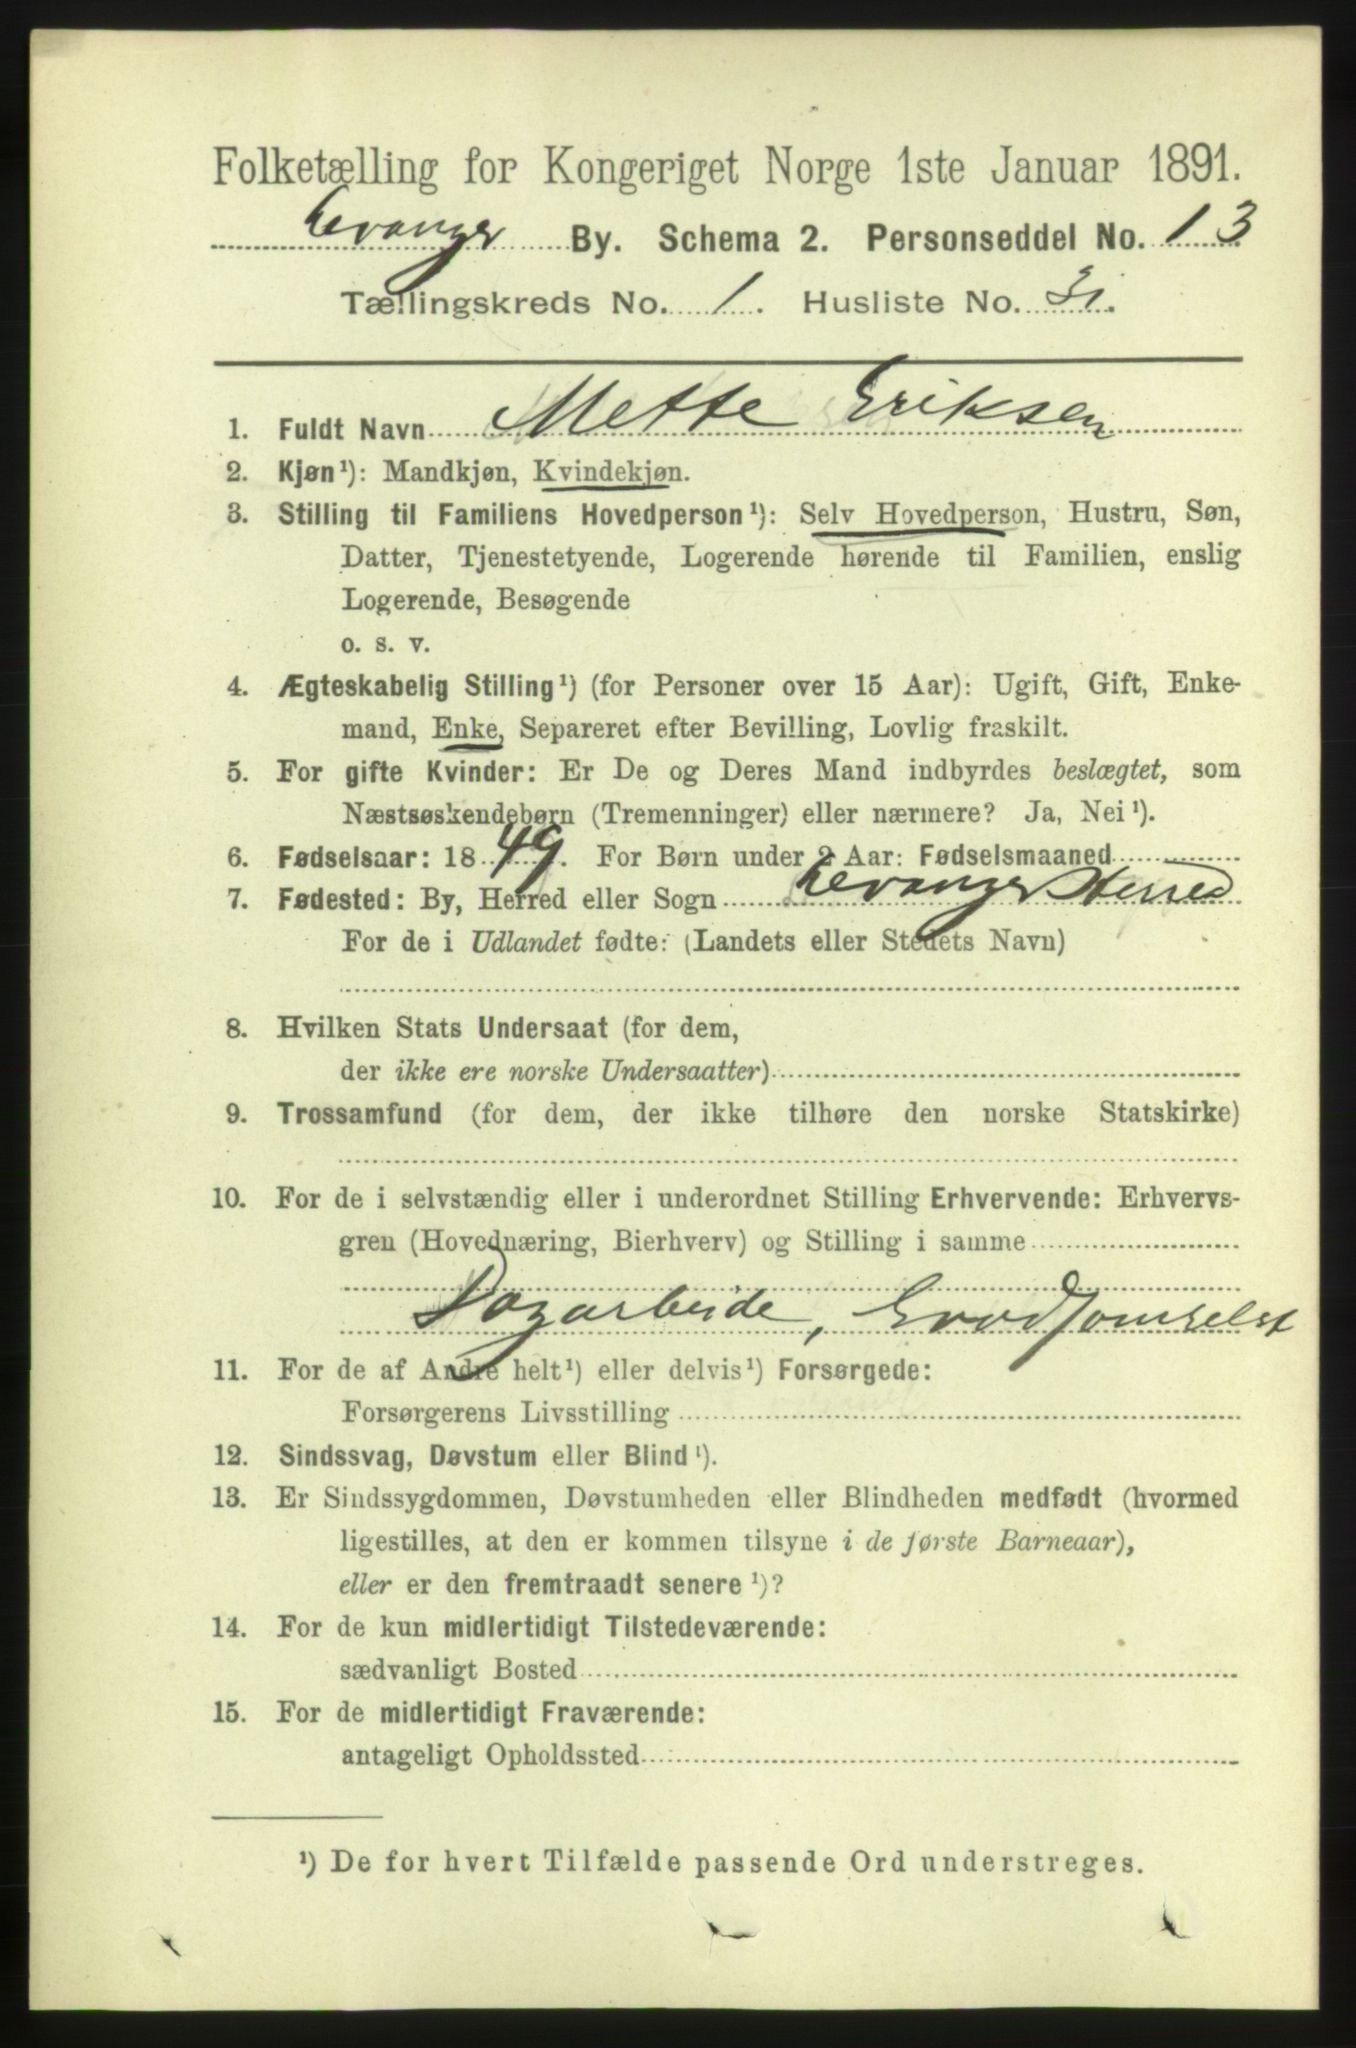 Folketælling for Kongeriget Norge 1ste Januar 1891.
Levanger By. Schema 2. Personseddel No. 13
Tællingskreds No. 1. Husliste No. 31.
1. Fuldt Navn Mette Eriksen
2. Kjøn¹): Mandkjøn, Kvindekjøn.
3. Stilling til Familiens Hovedperson¹): Selv Hovedperson, Hustru, Søn,
Datter, Tjenestetyende, Logerende hørende til Familien, enslig
Logerende, Besøgende
o. s. v.
4. Ægteskabelig Stilling¹) (for Personer over 15 Aar): Ugift, Gift, Enke-
mand, Enke, Separeret efter Bevilling, Lovlig fraskilt.
5. For gifte Kvinder: Er De og Deres Mand indbyrdes beslægtet, som
Næstsøskendebørn (Tremenninger) eller nærmere? Ja, Nei¹).
6. Fødselsaar: 1849. For Børn under 2 Aar: Fødselsmaaned
7. Fødested: By, Herred eller Sogn Levanger Herred
For de i Udlandet fødte: (Landets eller Stedets Navn)
8. Hvilken Stats Undersaat (for dem,
der ikke ere norske Undersaatter)
9. Trossamfund (for dem, der ikke tilhøre den norske Statskirke)
10. For de i selvstændig eller i underordnet Stilling Erhvervende: Erhvervs-
gren (Hovednæring, Bierhverv) og Stilling i samme
Dagarbeide,
11. For de af Andre helt¹) eller delvis¹) Forsørgede:
Forsørgerens Livsstilling
12. Sindssvag, Døvstum eller Blind¹).
13. Er Sindssygdommen, Døvstumheden eller Blindheden medfødt (hvormed
ligestilles, at den er kommen tilsyne i de første Barneaar),
eller er den fremtraadt senere¹)?
14. For de kun midlertidigt Tilstedeværende:
sædvanligt Bosted
15. For de midlertidigt Fraværende:
antageligt Opholdssted
¹) De for hvert Tilfælde passende Ord understreges.